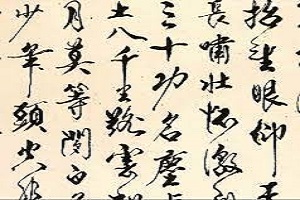 抬望眼仰天
長嘯壯懷激
三十功名塵
土八千里路雲和
月莫等閒白
少年頭空